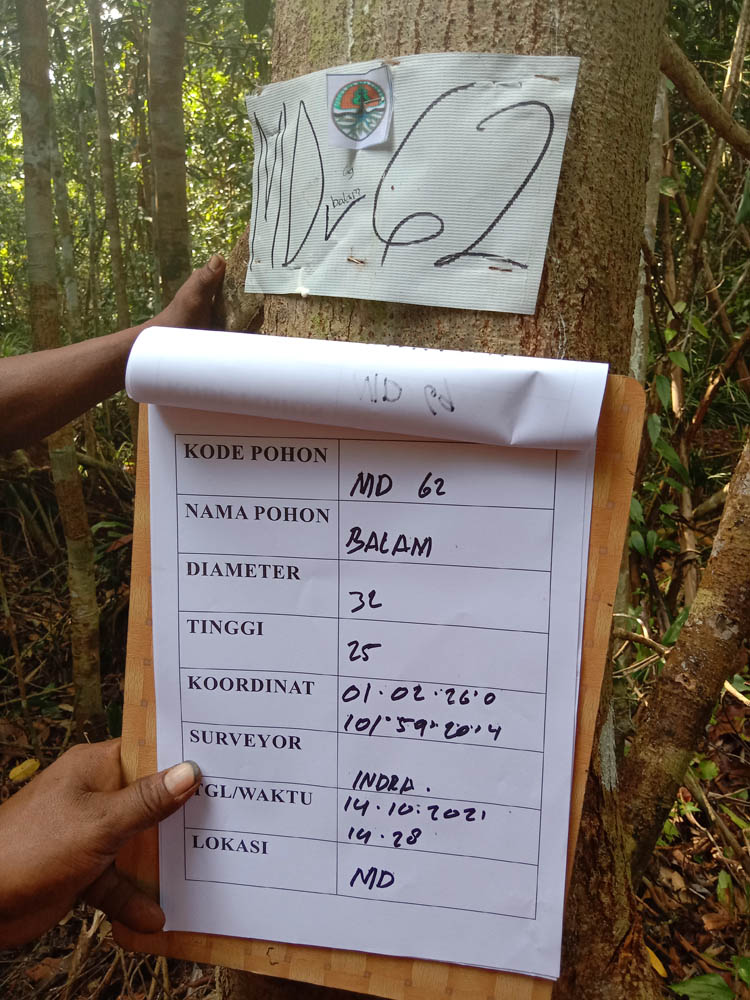 MD 62
balam
KODE POHON MD 62
NAMA POHON BALAM
DIAMETER 32
TINGGI 25
KOORDINAT 01.02.26.0
101.59.20.4
SURVEYOR INDRA.
TGL/WAKTU 14.10.2021
14.28
LOKASI MD